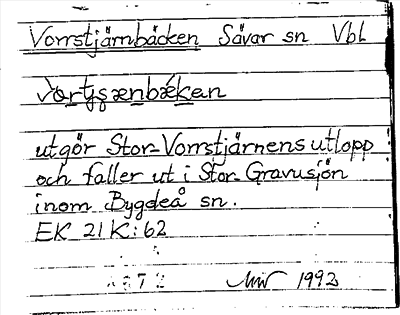 Vorrstjärnbäcken Sävar sn Vbl
utgör Stor-Vorrstjärnens utlopp
och faller ut i Stor-Gravusjön
inom Bygdeå sn.
EK 21 K: 62
1992